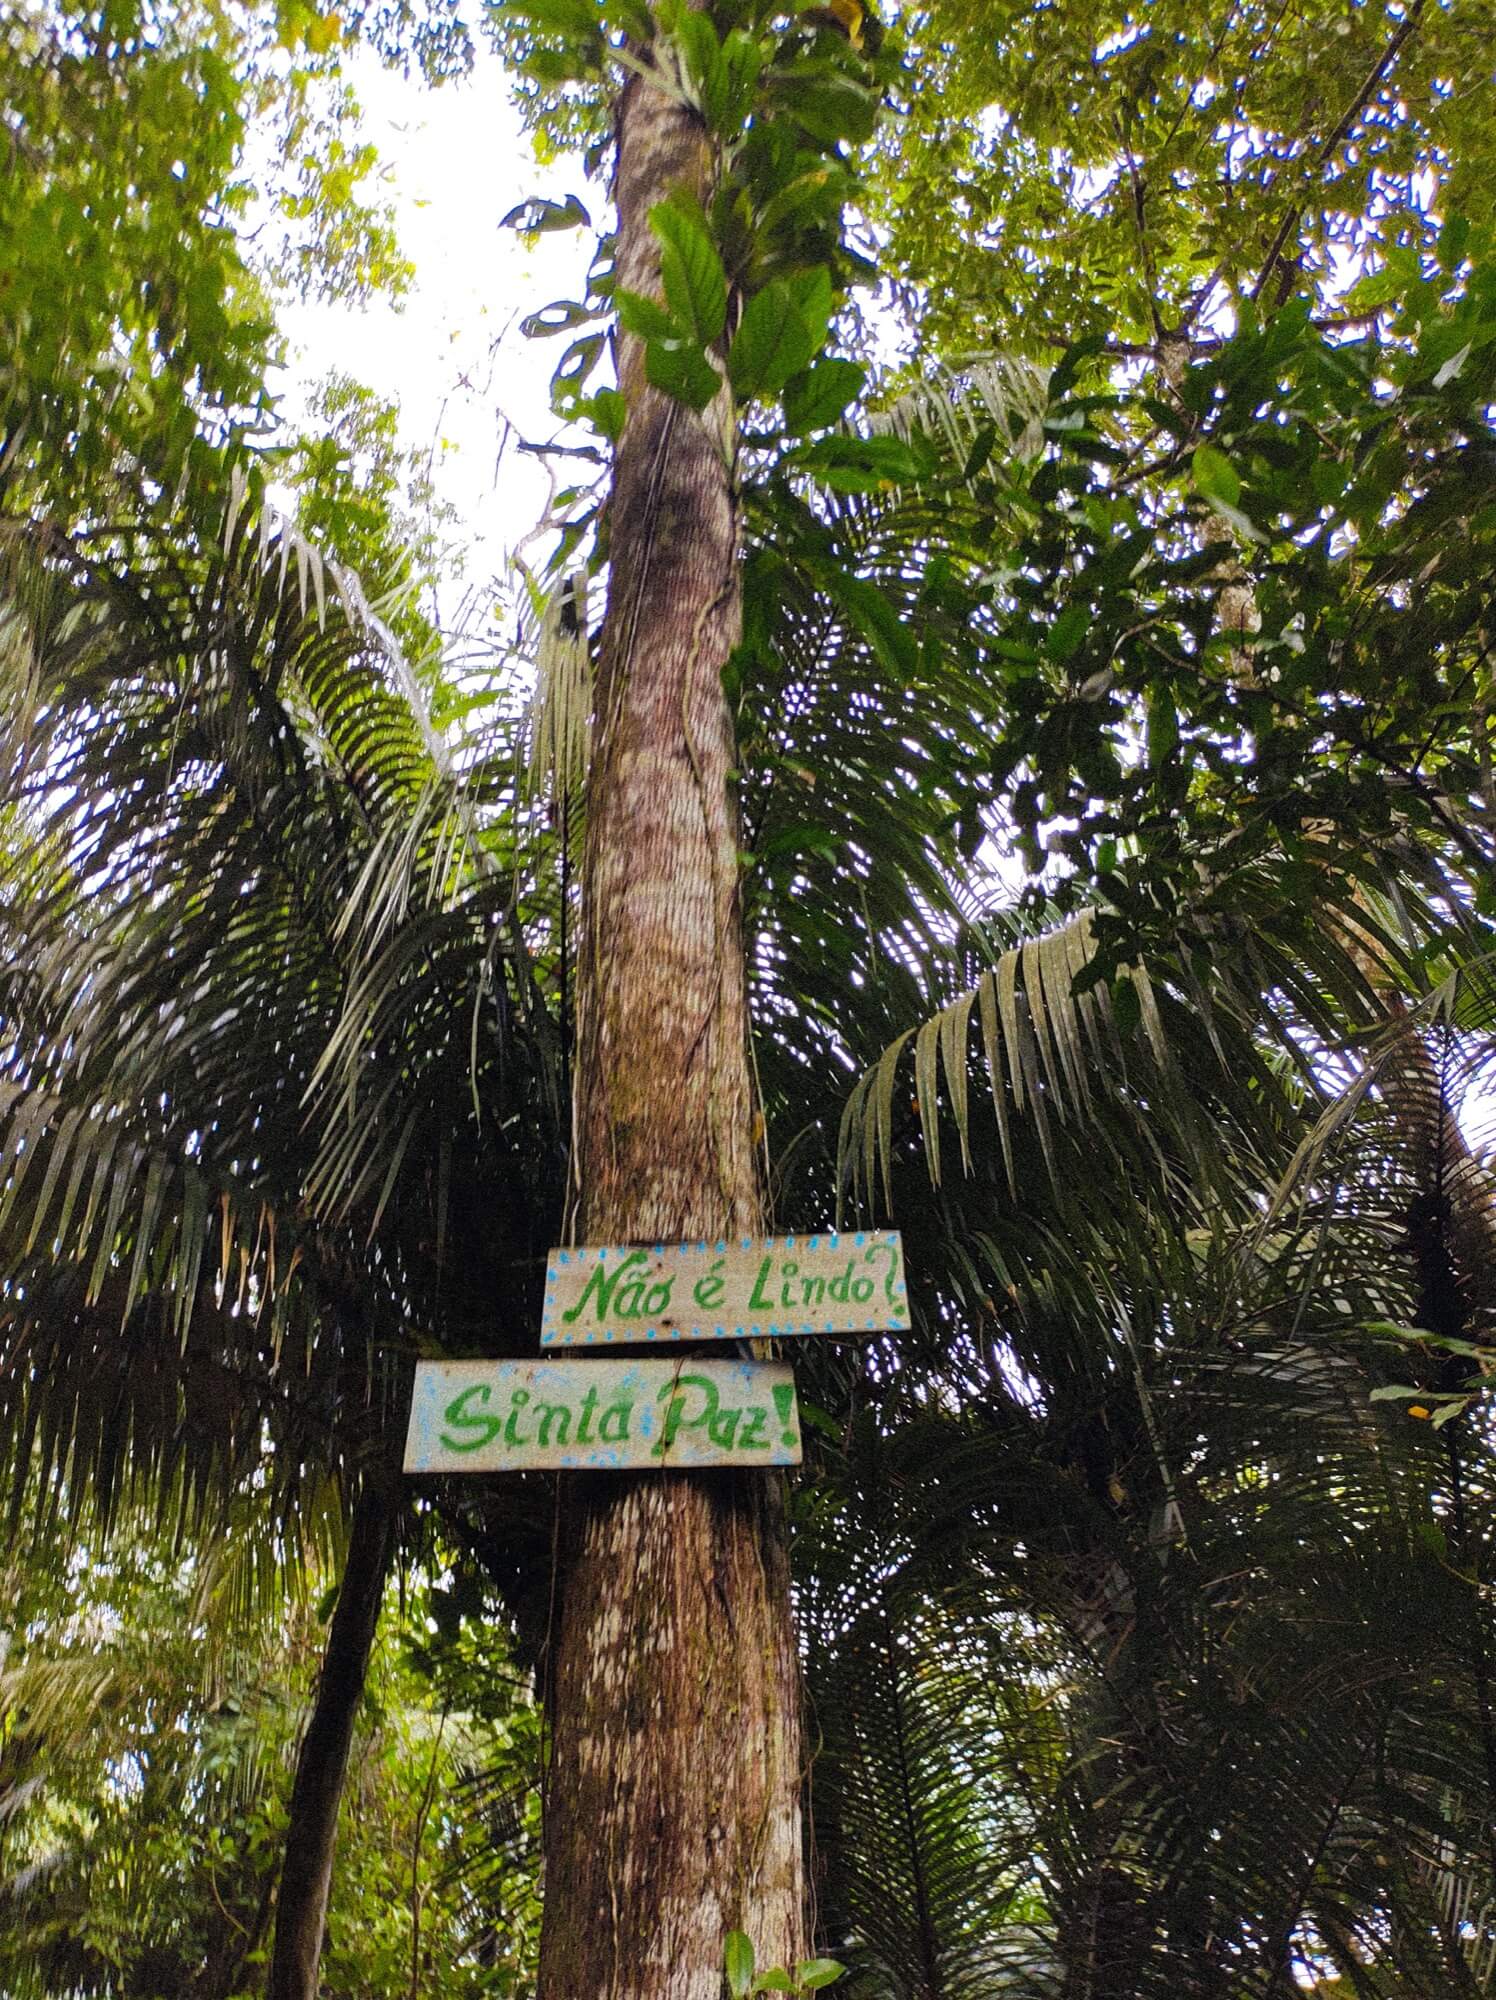 Não é Lindo?
Sinta Paz!